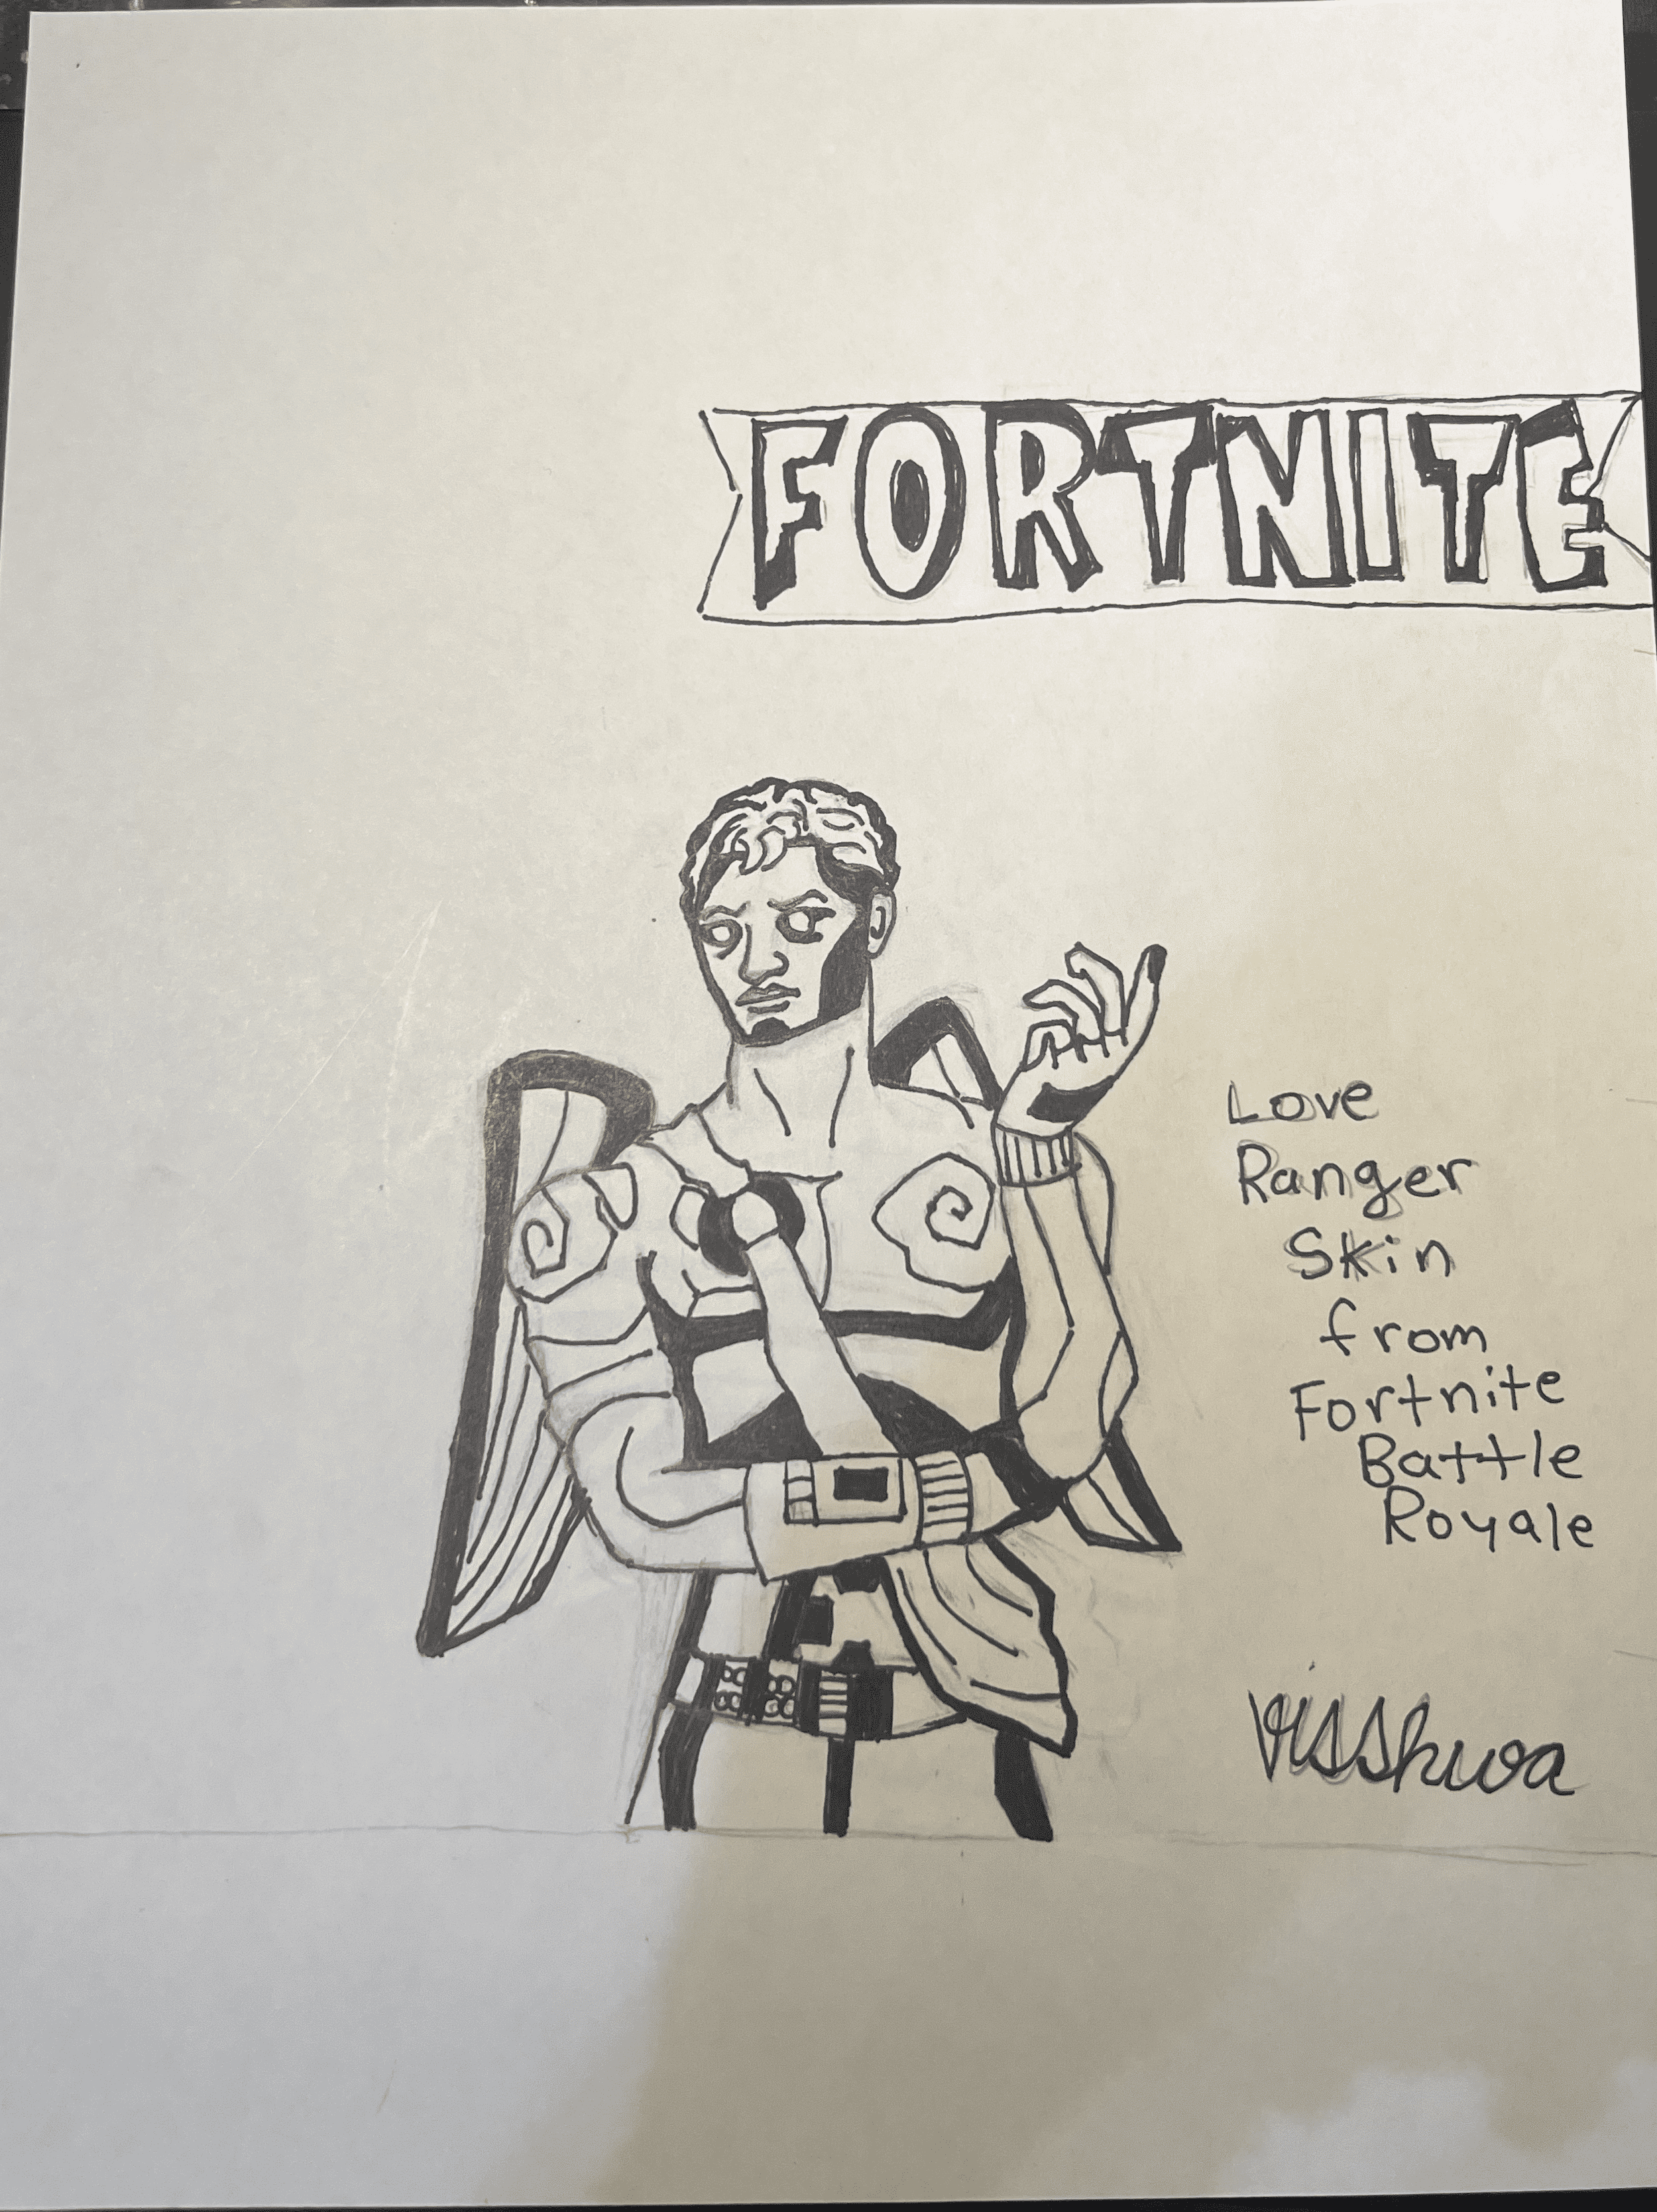 FORTNITE
Love
Ranger
Skin
from
Fortnite
Battle
Royale
Visshwa